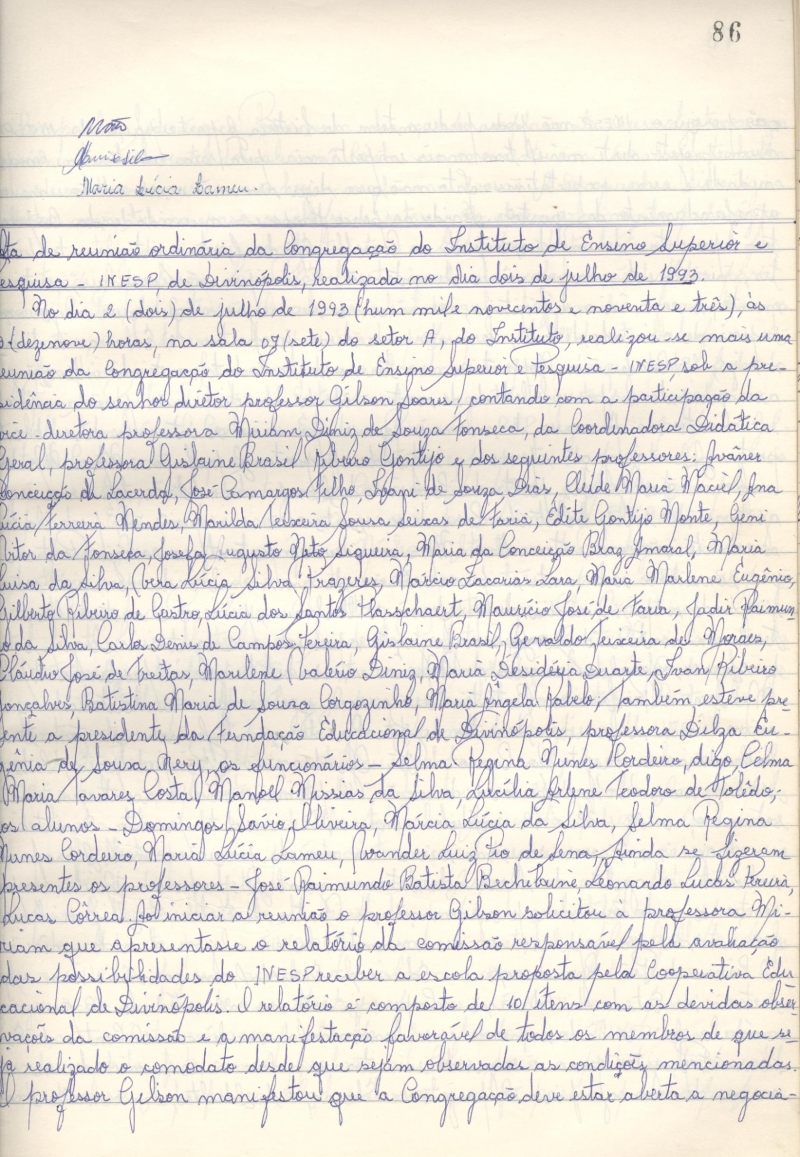 86
Maria Lúcia Lameu.
Ata de reunião ordinária da Congregação do Instituto de Ensino Superior e
esquisa - INESP, de Divinópolis, realizada no dia dois de julho de 1993.
No dia 2 (dois) de julho de 1993 (hum mil e novecentos e noventa e três), às
(dezenove) horas, na sala 07 (sete) do setor A, do Instituto, realizou-se mais uma
reunião da Congregação do Instituto de Ensino Superior e Pesquisa - INESP, sob a pre-
sidência do senhor diretor professor Gilson Soares, contando com a participação da
vice-diretora professora Miriam Diniz de Souza Fonseca, da Coordenadora Didática
Geral, professora Gislaine Brasil Ribeiro Gontijo e dos seguintes professores: Ivâner
Conceição de Lacerda, José Camargos Filho, de Souza Dias, Cleide Maria Maciel, Ana
Lúcia Ferreira Mendes, Marilda Teixeira Sousa Seixas de Faria, Edite Gontijo Monte, Geni
da Fonseca, Josefa Augusto Neto Siqueira, Maria da Conceição Braz Amaral, Maria
Luisa da Silva, Vera Lúcia Silva Prazeres, Márcio Zacarias Lara, Maria Marlene Eugênio,
Gilberto Ribeiro de Castro, Lúcia dos Santos Hasschaert, Maurício José de Faria, Jadir Raimun-
do da Silva, Carlos Denis de Campos Pereira, Gislaine Brasil, Geraldo Teixeira de Moraes,
Cláudio José de Freitas, Marilene Valério Diniz, Maria Desidéria Duarte, Ivan Ribeiro
Gonçalves, Batistina Maria de Souza Corgozinho, Maria Ângela Rabelo, também esteve pre-
sente a presidente da Fundação Educacional de Divinópolis, professora Dilza Eu-
gênia de Sousa Nery, os funcionários - Selma Regina Nunes Cordeiro, digo, Celma
Maria Tavares Costa, Manoel Missias da Silva, Lucília Arlene Teodoro de Tolêdo,
os alunos - Domingos Sávio Oliveira, Márcia Lúcia da Silva, Selma Regina
Nunes Cordeiro, Maria Lúcia Lameu, Wander Luiz Pio de Sena, ainda se fizeram
presentes os professores - José Raimundo Batista Bechelaine, Leonardo Lucas Pereira,
Lucas Côrrea. Ao iniciar a reunião o professor Gilson solicitou à professora Mi-
riam que apresentasse o relatório da comissão responsável pela avaliação
das possibilidades do INESP receber a escola proposta pela Cooperativa Edu-
cacional de Divinópolis. O relatório é composto de 10 itens com as devidas obser-
vações da comissão e a manifestação favorável de todos os membros de que se-
ja realizado o comodato desde que sejam observadas as condições mencionadas.
O professor Gilson manifestou que a Congregação deve estar aberta a negocia-